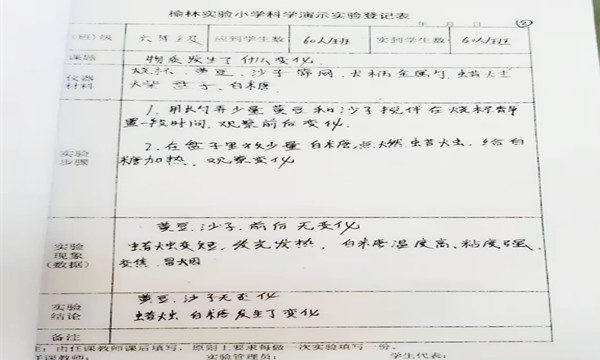 榆林实验小学科学演示实验登记表
年 月 日 ②
(班)级 六年级 应到学生数 60人/班 实到学生数 60人/班
课题 物质发生了什么变化
仪器 烧杯、黄豆、沙子 筛网、长柄金属勺、蜡烛
材料 火柴 盘子、白糖
1. 用勺弄少量黄豆和沙子搅伴在烧杯静
置一段时间、观察前后变化.
实验 2. 在盘子里放少量白糖,点燃蜡烛,给白
步骤 糖加热. 观察变化
黄豆、沙子前后无变化
实验 蜡烛变短、发光发热, 白糖温度高、粘度强、
现象
(数据) 变焦、冒烟
实验 黄豆、沙子无变化
结论 蜡烛、白糖发生了变化
备注
注: 由任课教师课后填写, 原则上要求每做一次实验填写一份。
任课教师: 实验管理员: 学生代表: